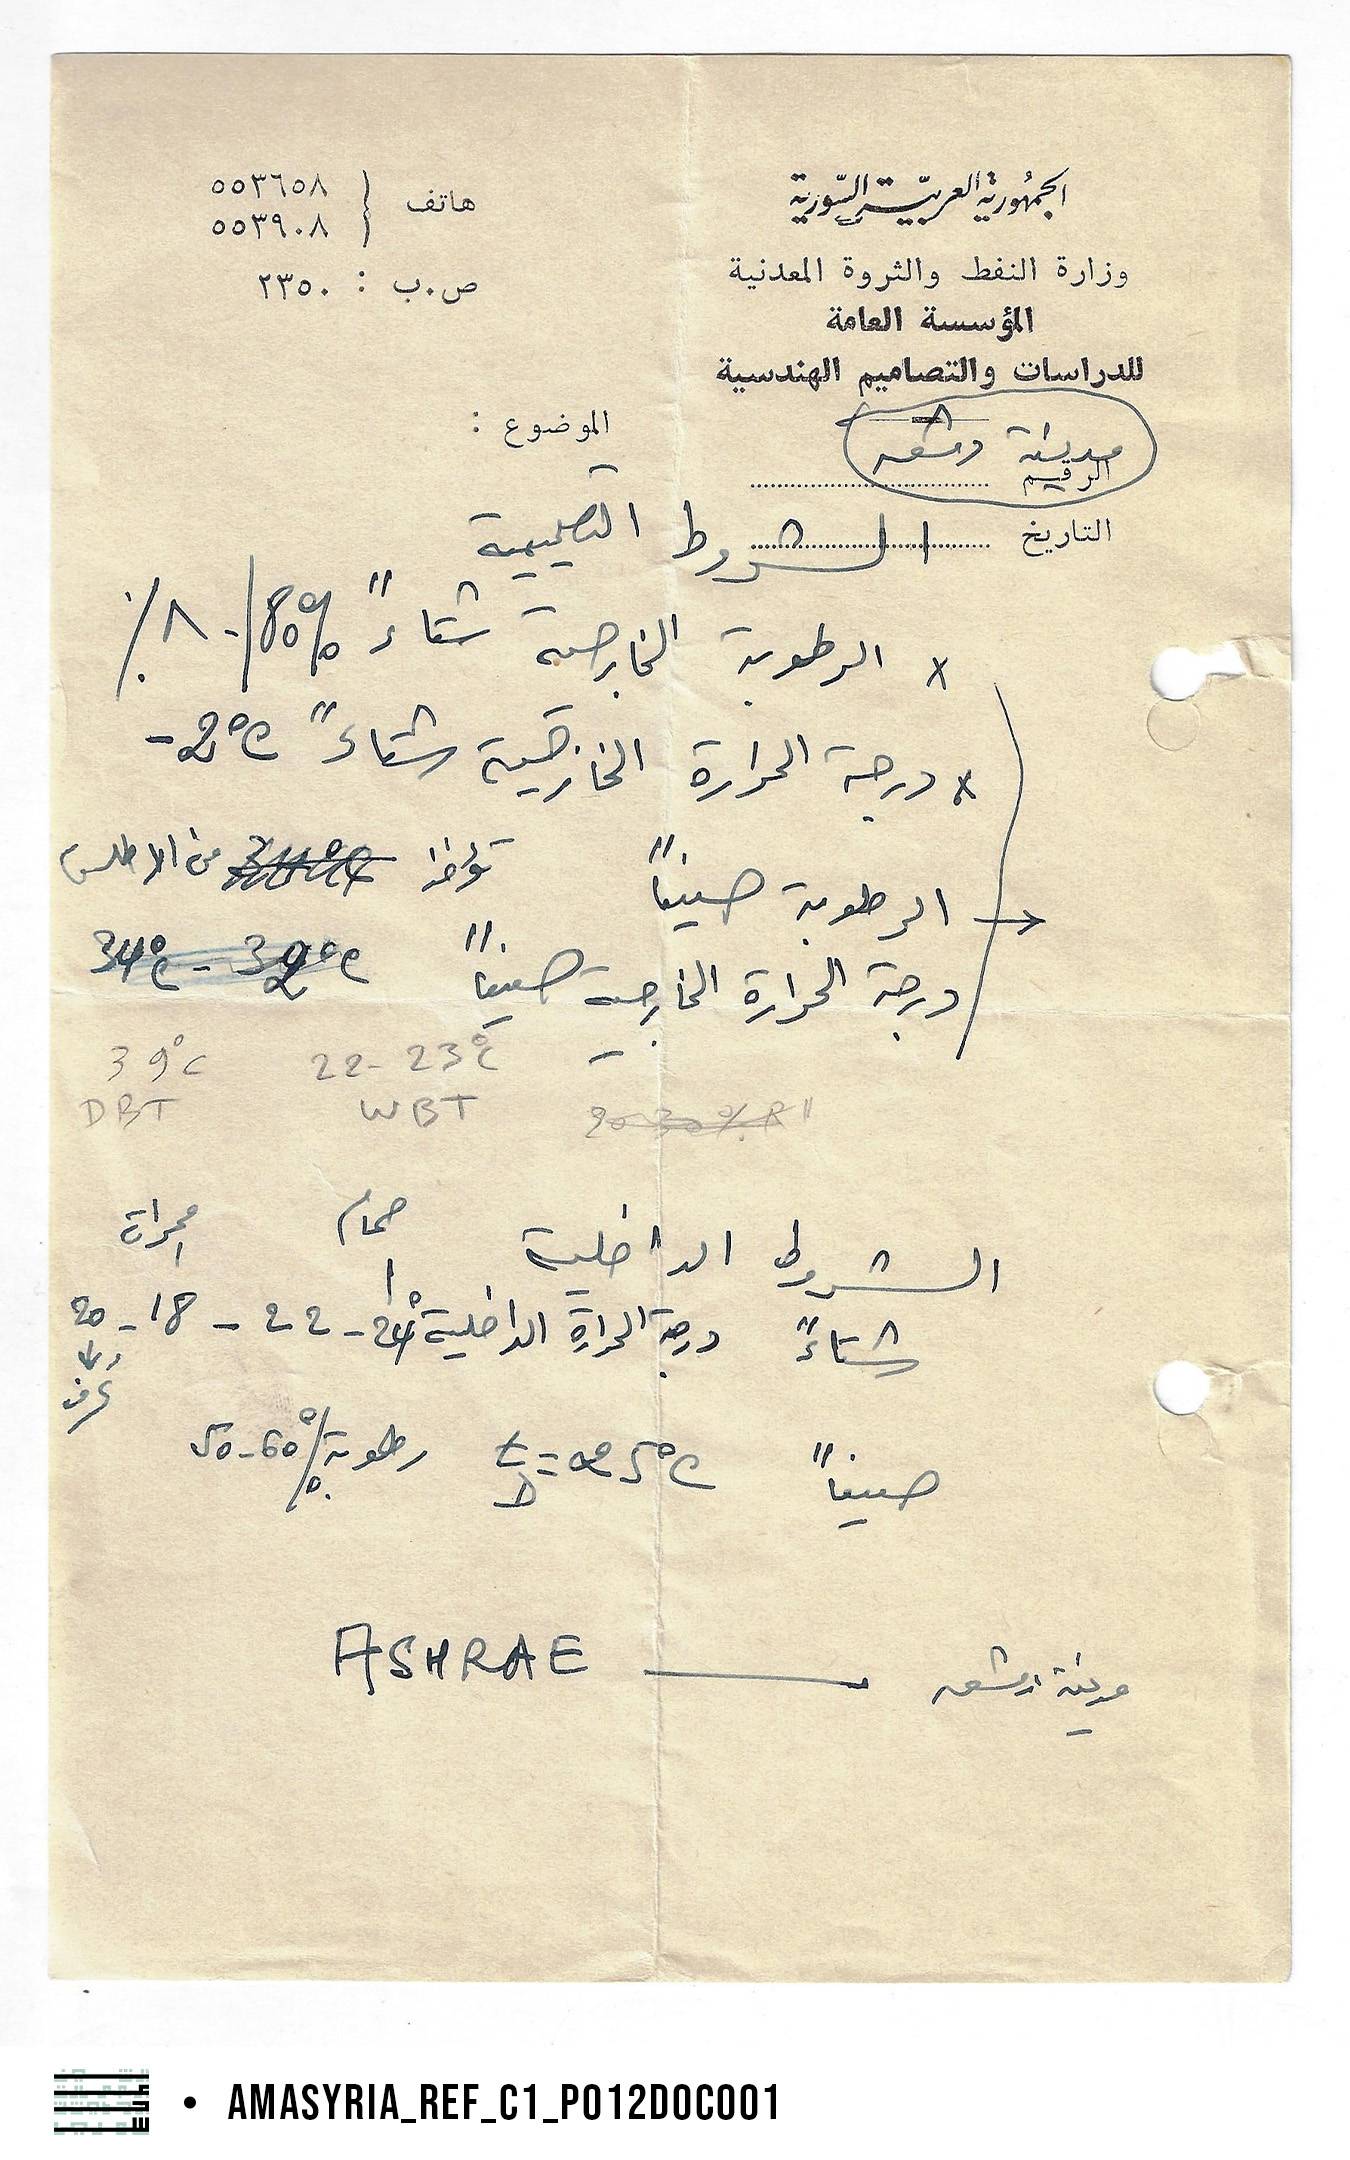 الجمهورية العربية السورية
وزارة النفط والثروة المعدنية
المؤسسة العامة
للدراسات والتصاميم الهندسية
هاتف ٥٥٣٦٥٨
٥٥٣٩٠٨
ص.ب : ٢٣٥٠
مدينة دمشق
الرقم
الموضوع :
التاريخ
الشروط التصميمية
x الرطوبة الخارجية شتاءً 80% / ٨٠٪
x درجة الحرارة الخارجية شتاءً -2°C
الرطوبة صيفاً تؤخذ من الاطلس
درجة الحرارة الخارجية صيفاً 34°C - 32°C
39°C 22-23°C
DBT WBT 20-30% RH
الشروط الداخلية حمام ممرات
شتاءً درجة الحرارة الداخلية 24° - 22 - 18 - 20
غرف
صيفاً t = 25°C رطوبة 50-60%
D
مدينة دمشق — ASHRAE
AMASYRIA_REF_C1_P012DOC001